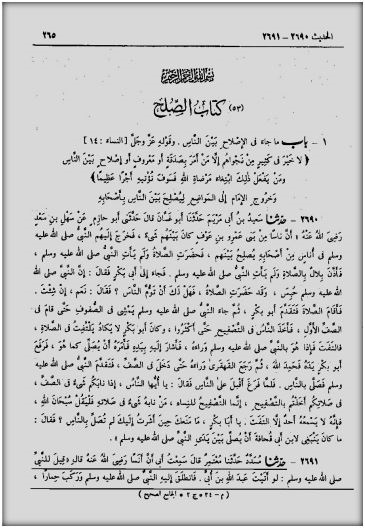 الحديث ٢٦٩٠ - ٢٦٩١ ٢٦٥
بسم الله الرحمن الرحيم
(٥٣) كتاب الصلح
١ - باب ما جاء فى الإصلاح بين الناس . وقوله عز وجل [ النساء : ١١٤ ]
﴿ لا خير فى كثير من نجواهم إلا من أمر بصدقة أو معروف أو إصلاح بين الناس
ومن يفعل ذلك ابتغاء مرضاة الله فسوف نؤتيه أجرا عظيما ﴾
وخروج الإمام إلى المواضع ليصلح بين الناس بأصحابه
٢٦٩٠ - حدثنا سعيد بن أبى مريم حدثنا أبو غسان قال حدثنى أبو حازم عن سهل بن سعد
رضى الله عنه : أن ناسا من بنى عمرو بن عوف كان بينهم شىء ، فخرج إليهم النبى صلى الله عليه
وسلم فى أناس من أصحابه يصلح بينهم ، فحضرت الصلاة ولم يأت النبى صلى الله عليه وسلم ،
فأذن بلال بالصلاة ولم يأت النبى صلى الله عليه وسلم . فجاء إلى أبى بكر فقال : إن النبى صلى الله عليه
وسلم حبس ، وقد حضرت الصلاة ، فهل لك أن تؤم الناس ؟ فقال : نعم ، إن شئت .
فأقام الصلاة فتقدم أبو بكر ، ثم جاء النبى صلى الله عليه وسلم يمشى فى الصفوف حتى قام فى
الصف الأول ، فأخذ الناس فى التصفيح حتى أكثروا ، وكان أبو بكر لا يكاد يلتفت فى الصلاة ،
فالتفت فإذا هو بالنبى صلى الله عليه وسلم وراءه ، فأشار إليه بيده فأمره أن يصلى كما هو ، فرفع
أبو بكر يده فحمد الله ، ثم رجع القهقرى وراءه حتى دخل فى الصف ، فتقدم النبى صلى الله عليه
وسلم فصلى بالناس . فلما فرغ أقبل على الناس فقال : يا أيها الناس ، إذا نابكم شىء فى الصف
فى صلاتكم أخذتم بالتصفيح ، إنما التصفيح للنساء ، من نابه شىء فى صلاته فليقل سبحان الله ،
فإنه لا يسمعه أحد إلا التفت . يا أبا بكر ، ما منعك حين أشرت إليك لم تصل بالناس ؟ فقال :
ما كان ينبغى لابن أبى قحافة أن يصلى بين يدى النبى صلى الله عليه وسلم » .
٢٦٩١ - حدثنا مسدد حدثنا معتمر قال سمعت أبى أن أنسا رضى الله عنه قال « قيل للنبى
صلى الله عليه وسلم : لو أتيت عبد الله بن أبى . فانطلق إليه النبى صلى الله عليه وسلم وركب حمارا ،
( م - ٣٤ ج ٢ * الجامع الصحيح )